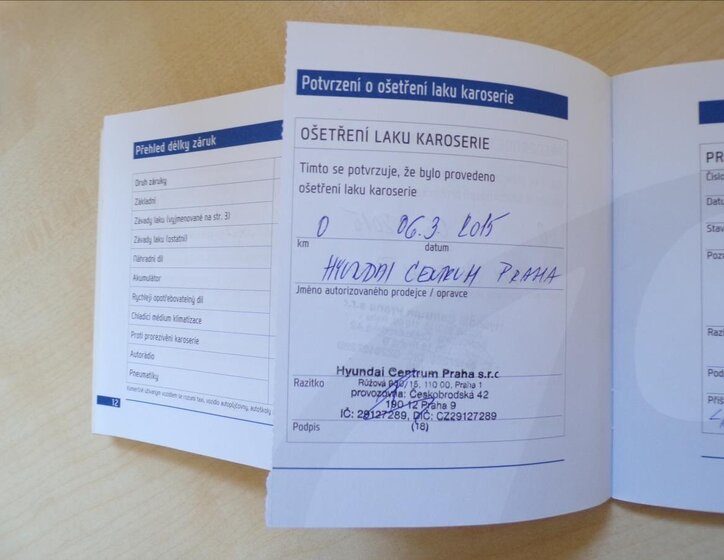 Přehled délky záruk
Druh záruky
Základní
Závady laku (vyjmenované na str. 3)
Závady laku (ostatní)
Náhradní díl
Akumulátor
Rychleji opotřebovatelný díl
Chladicí médium klimatizace
Proti prorezivění karoserie
Autorádio
Pneumatiky
Komerčně užívaným vozidlem se rozumí taxi, vozidlo autopůjčovny, autoškoly
12
Potvrzení o ošetření laku karoserie
OŠETŘENÍ LAKU KAROSERIE
Tímto se potvrzuje, že bylo provedeno
ošetření laku karoserie
0 06.3. 2015
km datum
HYUNDAI CENTRUM PRAHA
Jméno autorizovaného prodejce / opravce
Hyundai Centrum Praha s.r.o
Růžová /15, 110 00, Praha 1
Razítko
provozovna: Českobrodská 42
190 12 Praha 9
IČ: 29127289, DIČ: CZ29127289
Podpis
(18)
PR
Číslo
Datu
Stav
Poz
Raz
Pod